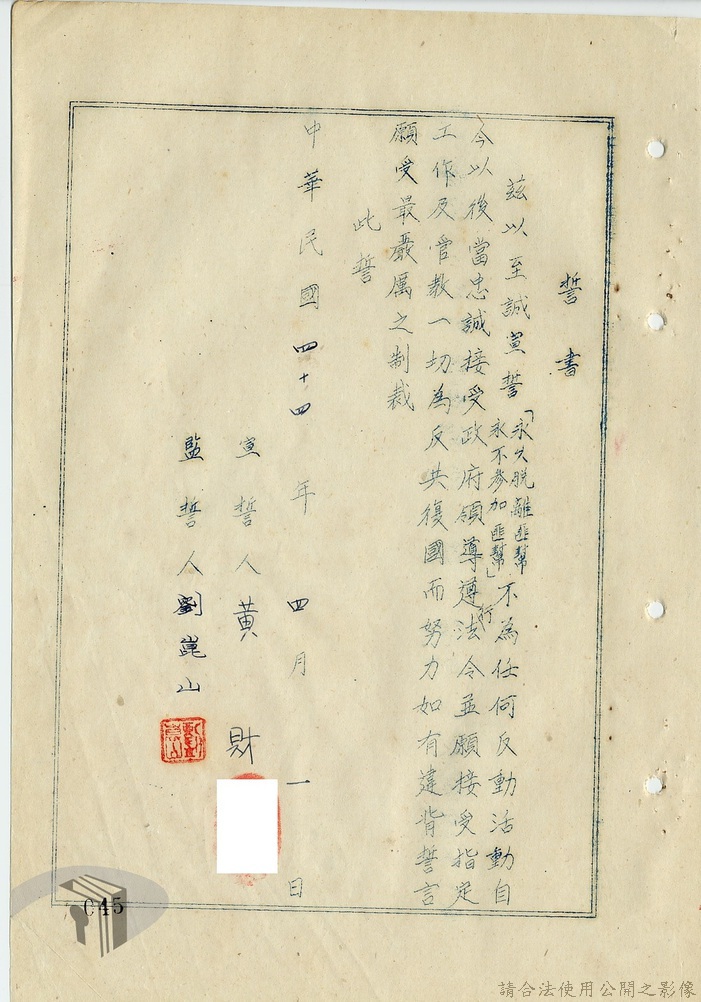 誓書
茲以至誠宣誓「永久脫離匪幫永不參加匪幫」不為任何反動活動自
今以後當忠誠接受政府領導遵行法令並願接受指定
工作及管教一切為反共復國而努力如有違背誓言
願受最嚴厲之制裁
此誓
中華民國四十四年四月一日
宣誓人黃財
監誓人劉崑山
劉崑山
045
請合法使用公開之影像